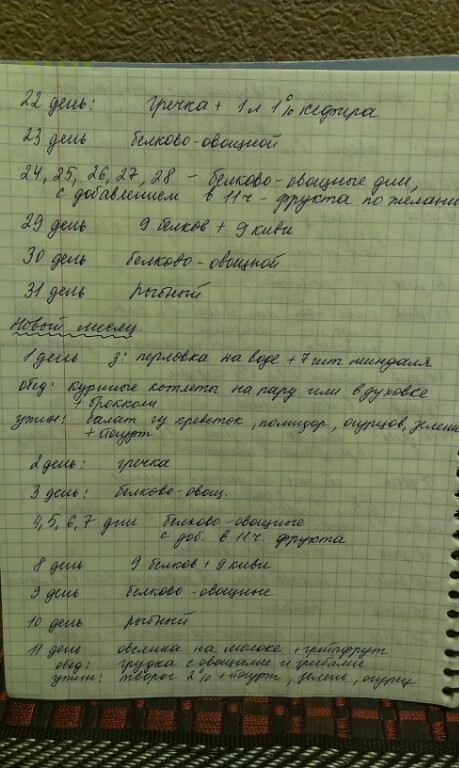 22 день: гречка + 1 л 1% кефира
23 день белково-овощной
24, 25, 26, 27, 28 - белково-овощные дни,
с добавлением в 11 ч - фрукта по желани
29 день 9 белков + 9 киви
30 день белково-овощной
31 день рыбный
Новый месяц.
1 день з: перловка на воде + 7 шт миндаля
обед: куриные котлеты на пару или в духовке
+ брокколи
ужин: салат из креветок, помидор, огурцов, зелени
+ йогурт
2 день: гречка
3 день: белково-овощ.
4, 5, 6, 7 дни белково-овощные
с доб. в 11 ч. фрукта
8 день 9 белков + 9 киви
9 день белково-овощные
10 день рыбный
11 день овсянка на молоке + грейпфрут
обед: грудка с овощами и грибами
ужин: творог 2% + йогурт, зелень, огурец